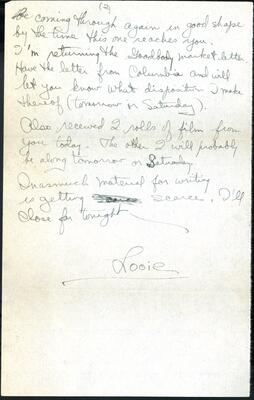 (2)
be coming through again in good shape
by the time this one reaches you.
I'm returning the Goodbody market letter
Have the letter from Columbia and will
let you know what dispositon I make
thereof (tomorrow or Saturday).
Also received 2 rolls of film from
you today. The other 2 will probably
be along tomorrow or Saturday.
Inasmuch material for writing
is getting scarce, I'll
close for tonight
Looie